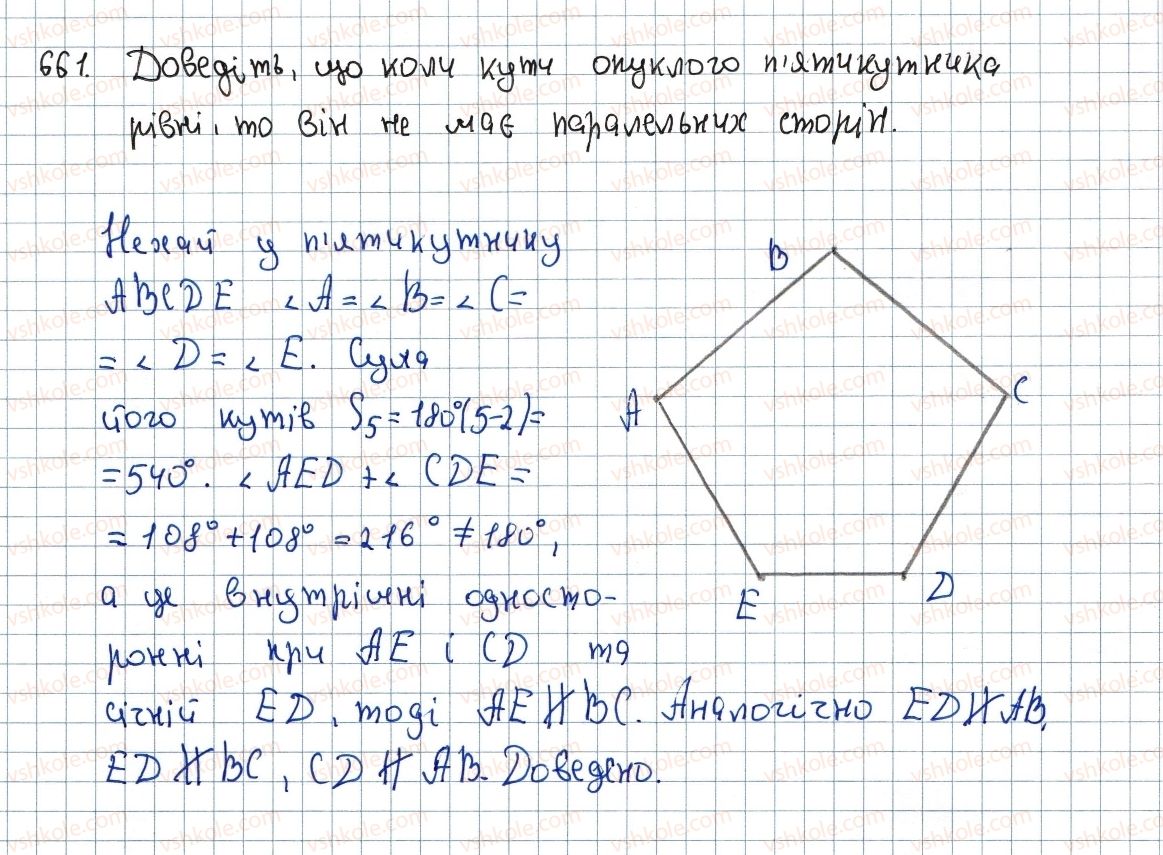 661. Доведіть, що коли кути опуклого п'ятикутника
рівні, то він не має паралельних сторін.
Нехай у п'ятикутнику
ABCDE ∠A = ∠B = ∠C =
= ∠D = ∠E. Сума
його кутів S₅ = 180°(5-2) =
= 540°. ∠AED + ∠CDE =
= 108° + 108° = 216° ≠ 180°,
а це внутрішні односто-
ронні при AE і CD та
січній ED, тоді AE ∦ BC. Аналогічно ED ∦ AB,
ED ∦ BC, CD ∦ AB. Доведено.
B
A
C
E
D
vshkole.com